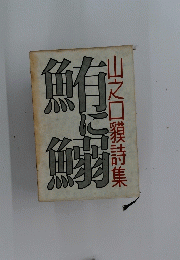 山之口貘詩集
鮪に鰯